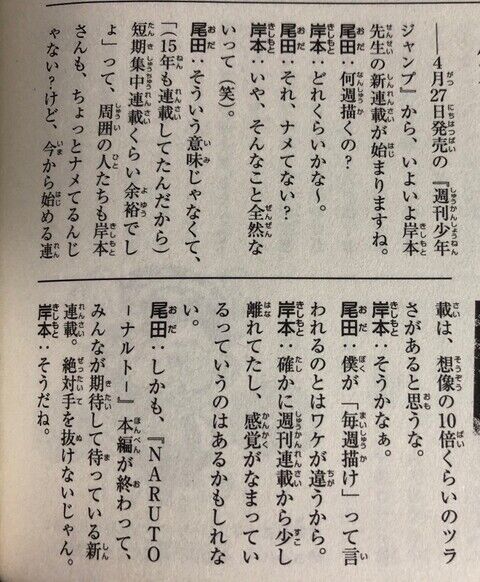 ――4月27日発売の『週刊少年
ジャンプ』から、いよいよ岸本
先生の新連載が始まりますね。
尾田：何週描くの？
岸本：どれくらいかな～。
尾田：それ、ナメてない？
岸本：いや、そんなこと全然な
いって（笑）。
尾田：そういう意味じゃなくて、
「（15年も連載してたんだから）
短期集中連載くらい余裕でし
ょ」って、周囲の人たちも岸本
さんも、ちょっとナメてるんじ
ゃない？けど、今から始める連
載は、想像の10倍くらいのツラ
さがあると思うな。
岸本：そうかなぁ。
尾田：僕が「毎週描け」って言
われるのとはワケが違うから。
岸本：確かに週刊連載から少し
離れてたし、感覚がなまってい
るっていうのはあるかもしれな
い。
尾田：しかも、『NARUTO
－ナルト－』本編が終わって、
みんなが期待して待っている新
連載。絶対手を抜けないじゃん。
岸本：そうだね。